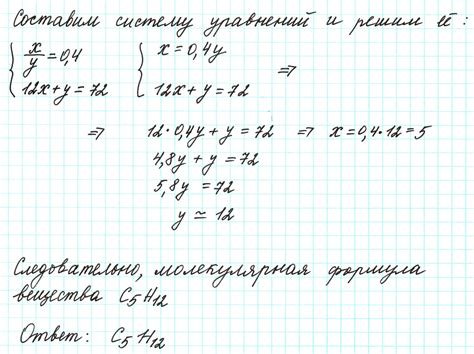 Составим систему уравнений и решим её:
{ x/y = 0,4 { x = 0,4y
⇒
12x + y = 72 12x + y = 72
⇒ 12 · 0,4y + y = 72 ⇒ x = 0,4 · 12 = 5
4,8y + y = 72
5,8y = 72
y ≃ 12
Следовательно, молекулярная формула
вещества C₅H₁₂
Ответ: C₅H₁₂